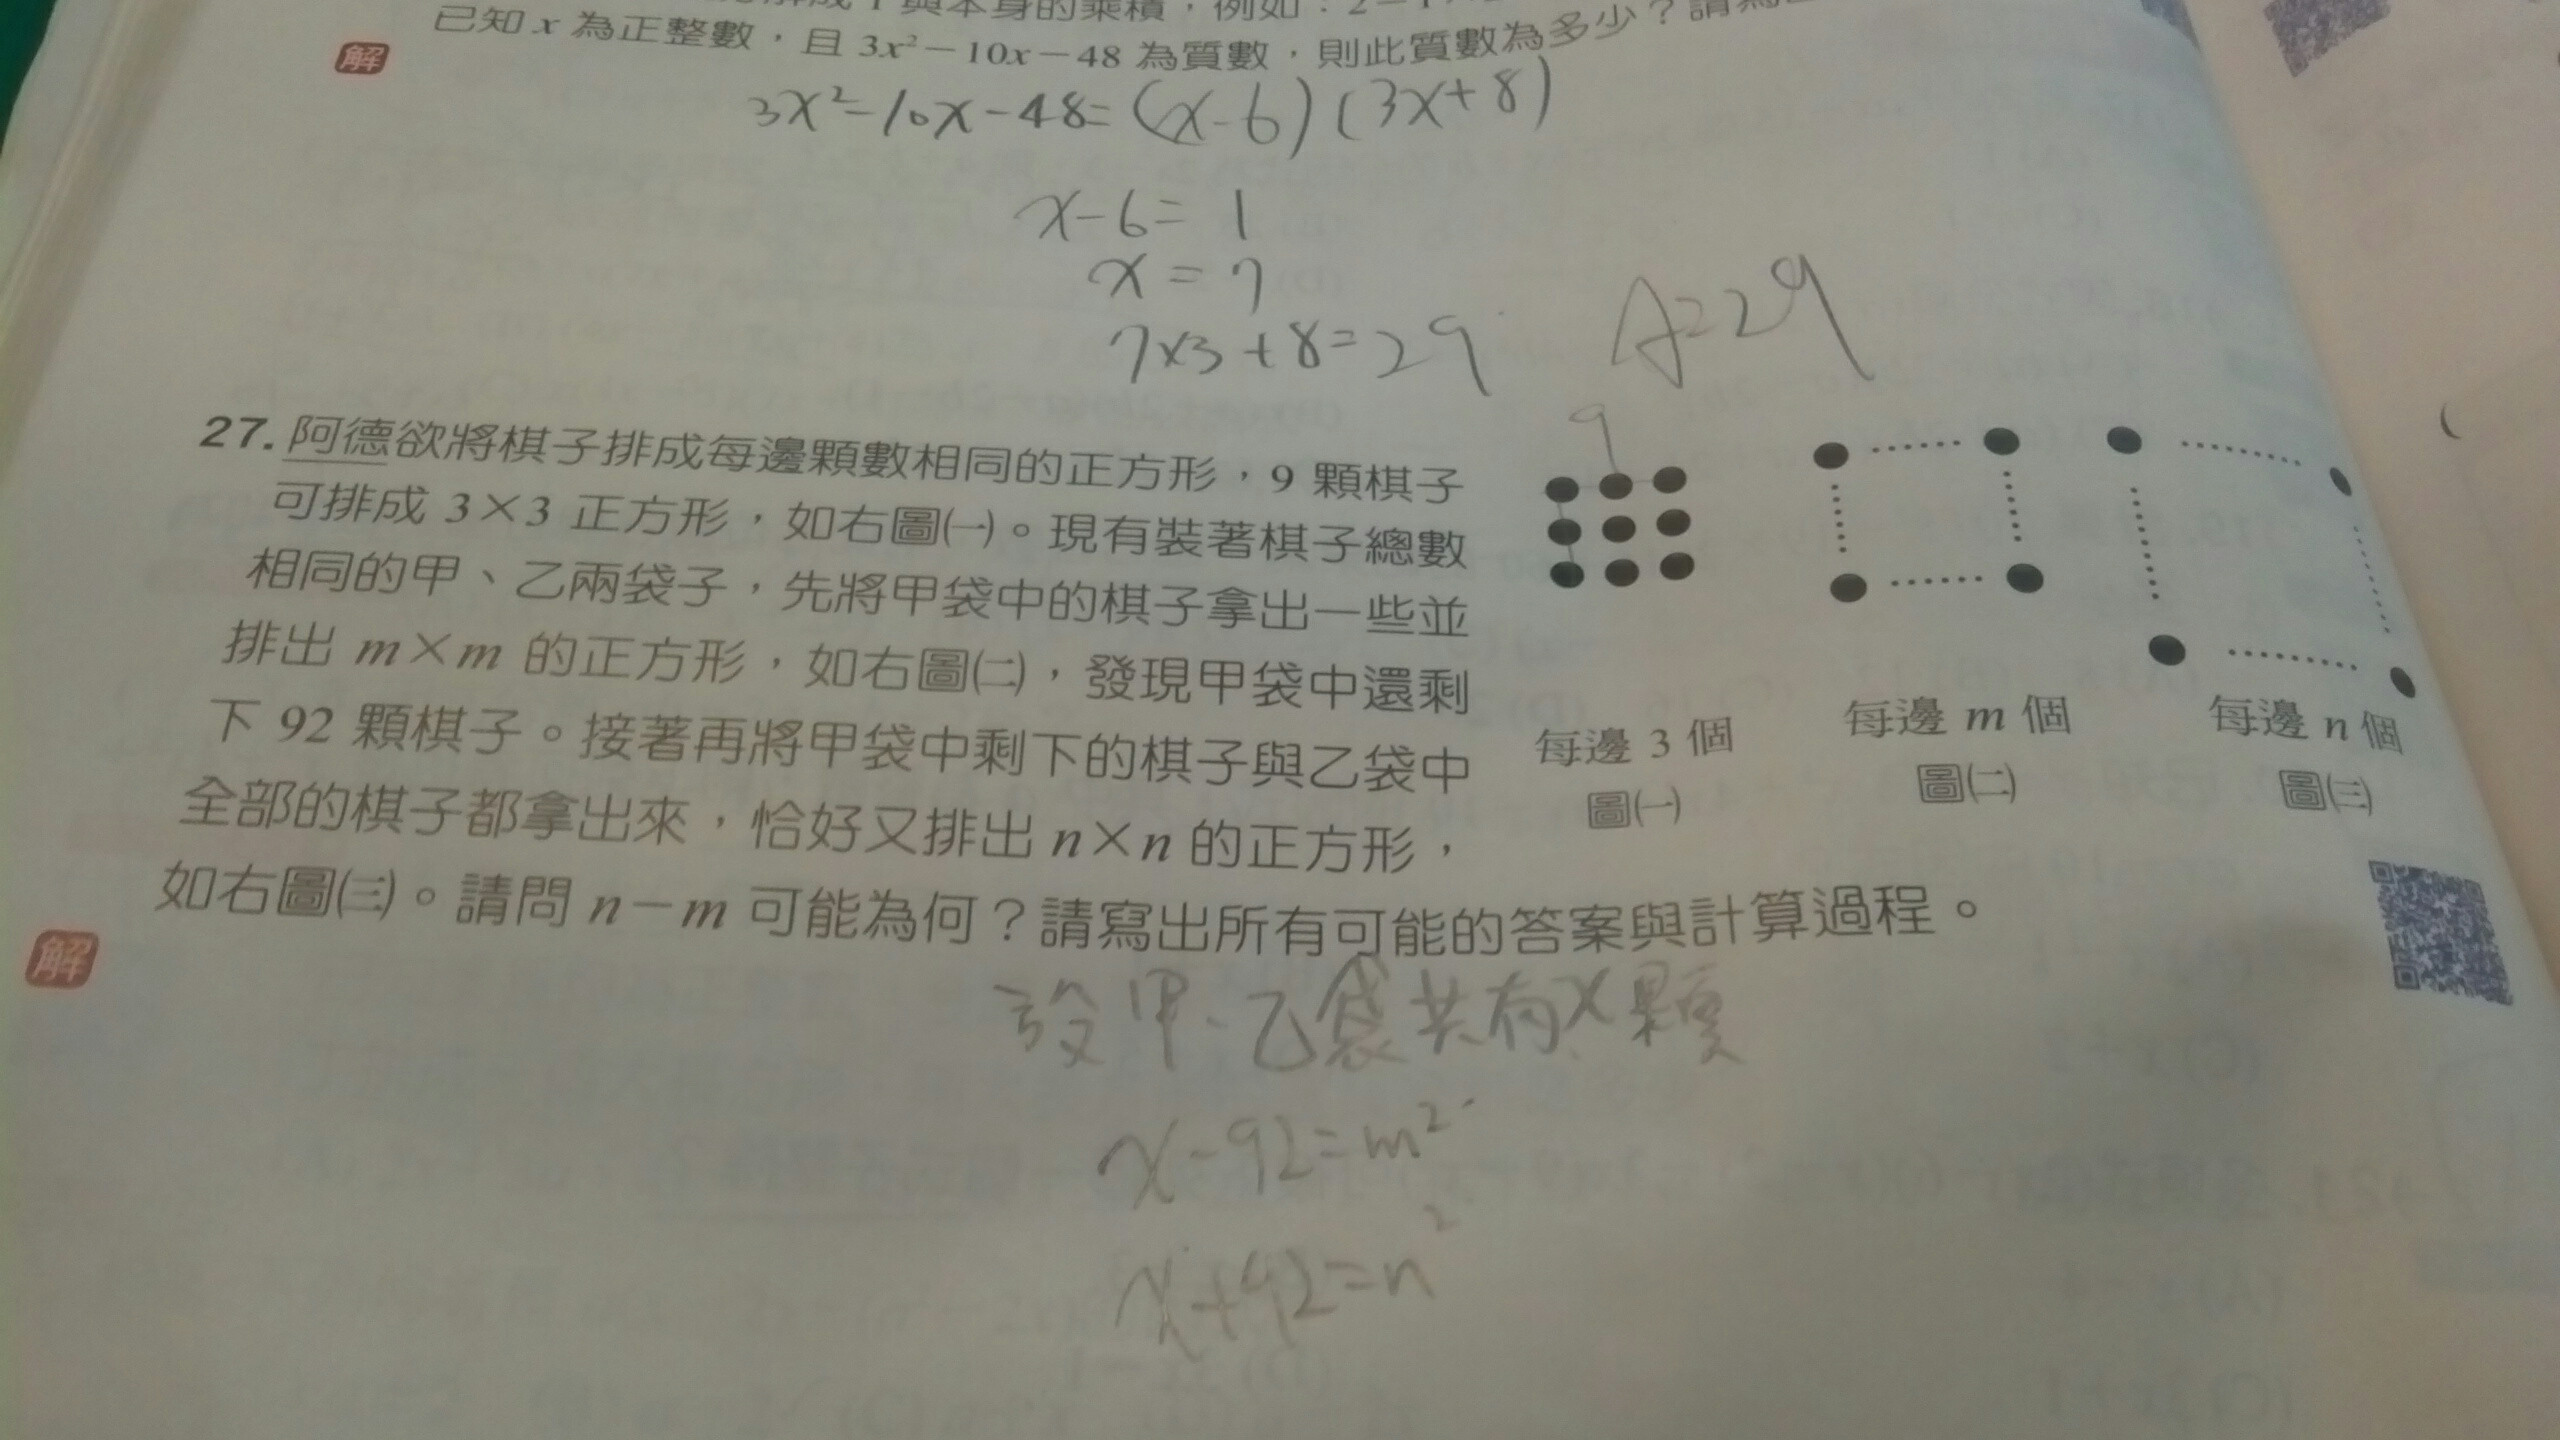 與本身的乘積，例如：2＝1
已知 x 為正整數，且 3x²－10x－48 為質數，則此質數為多少？
解
3x²-10x-48=(x-6)(3x+8)
x-6=1
x=7
7x3+8=29
A=29
27. 阿德欲將棋子排成每邊顆數相同的正方形，9 顆棋子
可排成 3×3 正方形，如右圖㈠。現有裝著棋子總數
相同的甲、乙兩袋子，先將甲袋中的棋子拿出一些並
排出 m×m 的正方形，如右圖㈡，發現甲袋中還剩
下 92 顆棋子。接著再將甲袋中剩下的棋子與乙袋中
全部的棋子都拿出來，恰好又排出 n×n 的正方形，
如右圖㈢。請問 n－m 可能為何？請寫出所有可能的答案與計算過程。
9
每邊 3 個
圖㈠
每邊 m 個
圖㈡
每邊 n 個
圖㈢
解
設甲、乙袋共有x顆
x-92=m²
x+92=n²